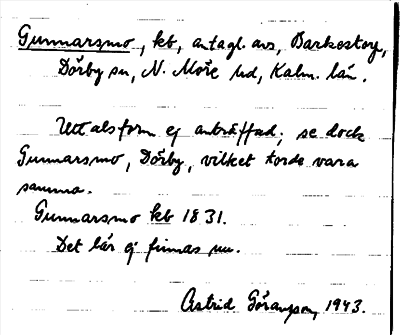 Gunnarsmo, kb, antagl. avs, Barkestorp,
Dörby sn, N. Möre hd, Kalm. län.
Uttalsform ej anträffad; se dock
Gunnarsmo, Dörby, vilket torde vara
samma.
Gunnarsmo kb 1831.
Det lär ej finnas nu.
Astrid Göransson, 1943.